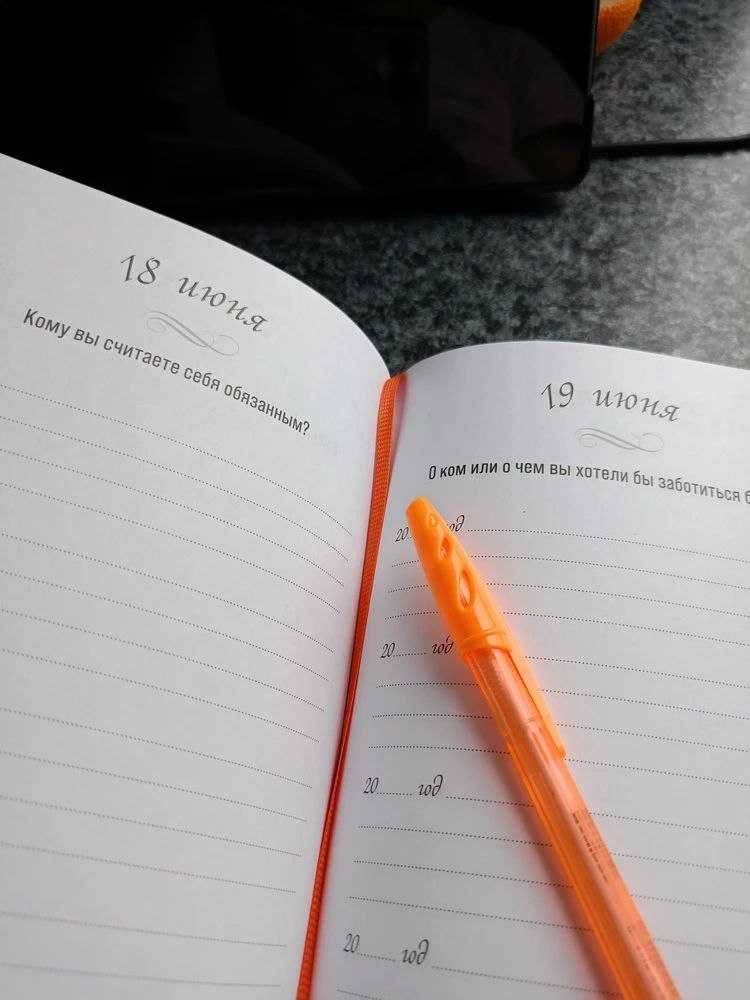 18 июня
Кому вы считаете себя обязанным?
19 июня
О ком или о чем вы хотели бы заботиться
20........ год
20........ год
20........ год
20........ год